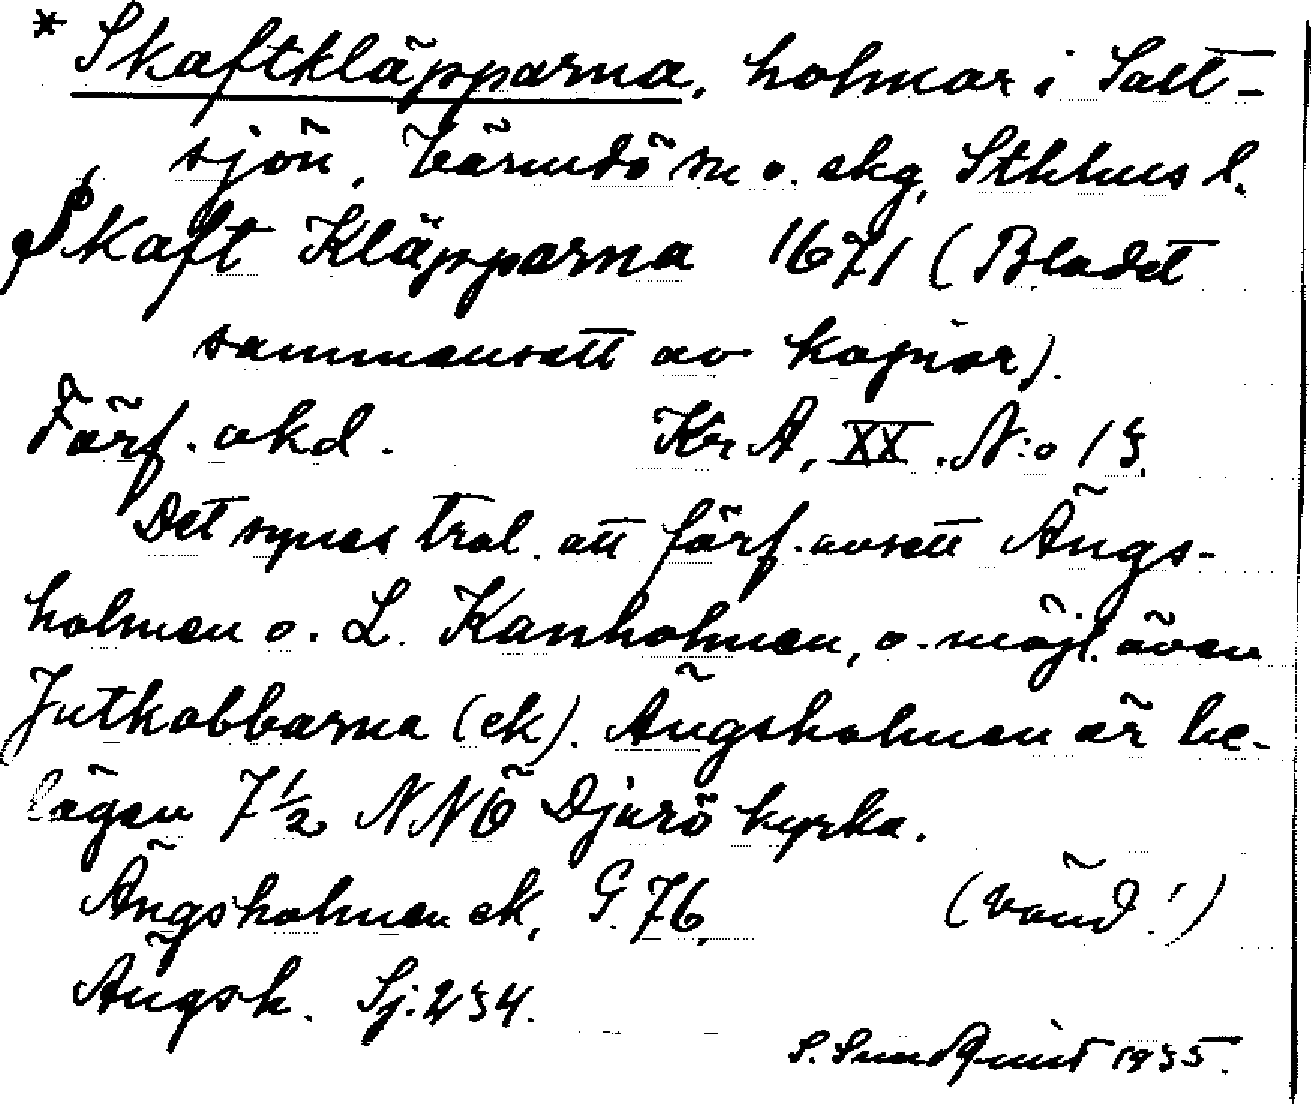 * Skaftkläpparna, holmar i Salt-
sjön, Värmdö sn o. skg, Sthlms l.
Skaft Kläpparna 1671 (Bladet
sammansatt av kopior).
Förf. okd. Kr A, XX. N:o 13.
Det synes trol. att förf. avsett Ängs-
holmen o. L. Kanholmen, o. möjl. även
Jutkobbarna (ek). Ängsholmen är be-
lägen 7 1/2 NNÖ Djurö kyrka.
Ängsholmen ek, G. 76. (vänd!)
Ängsh. Sj. 234.
S. Sundquist 1935.